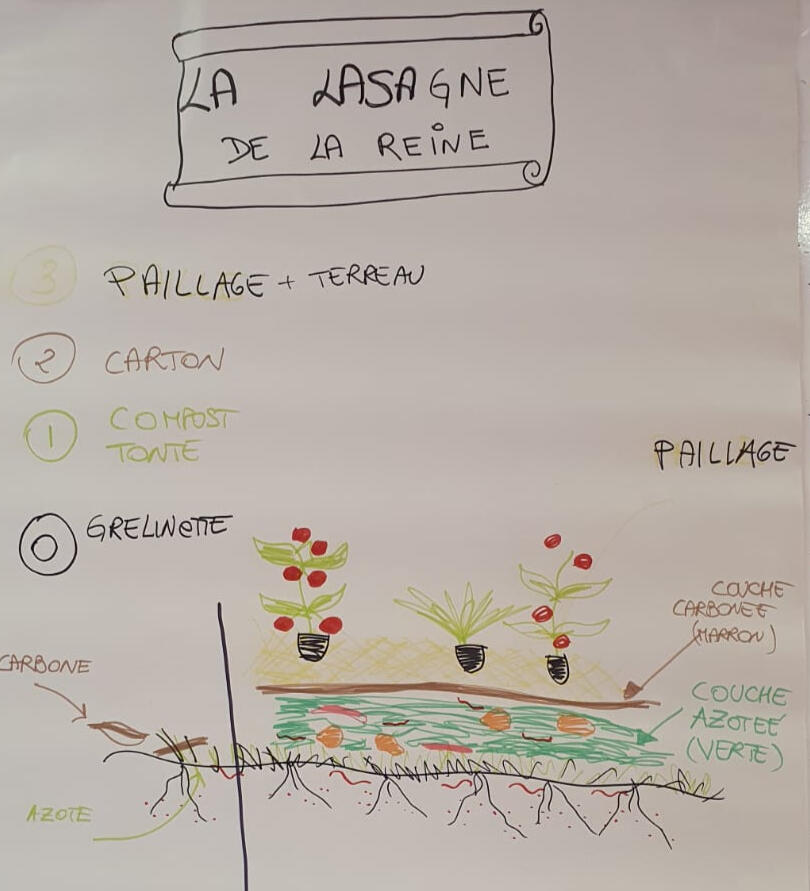 LA LASAGNE
DE LA REINE
3 PAILLAGE + TERREAU
2 CARTON
1 COMPOST
TONTE
PAILLAGE
0 GRELINETTE
COUCHE
CARBONEE
(MARRON)
CARBONE
COUCHE
AZOTEE
(VERTE)
AZOTE